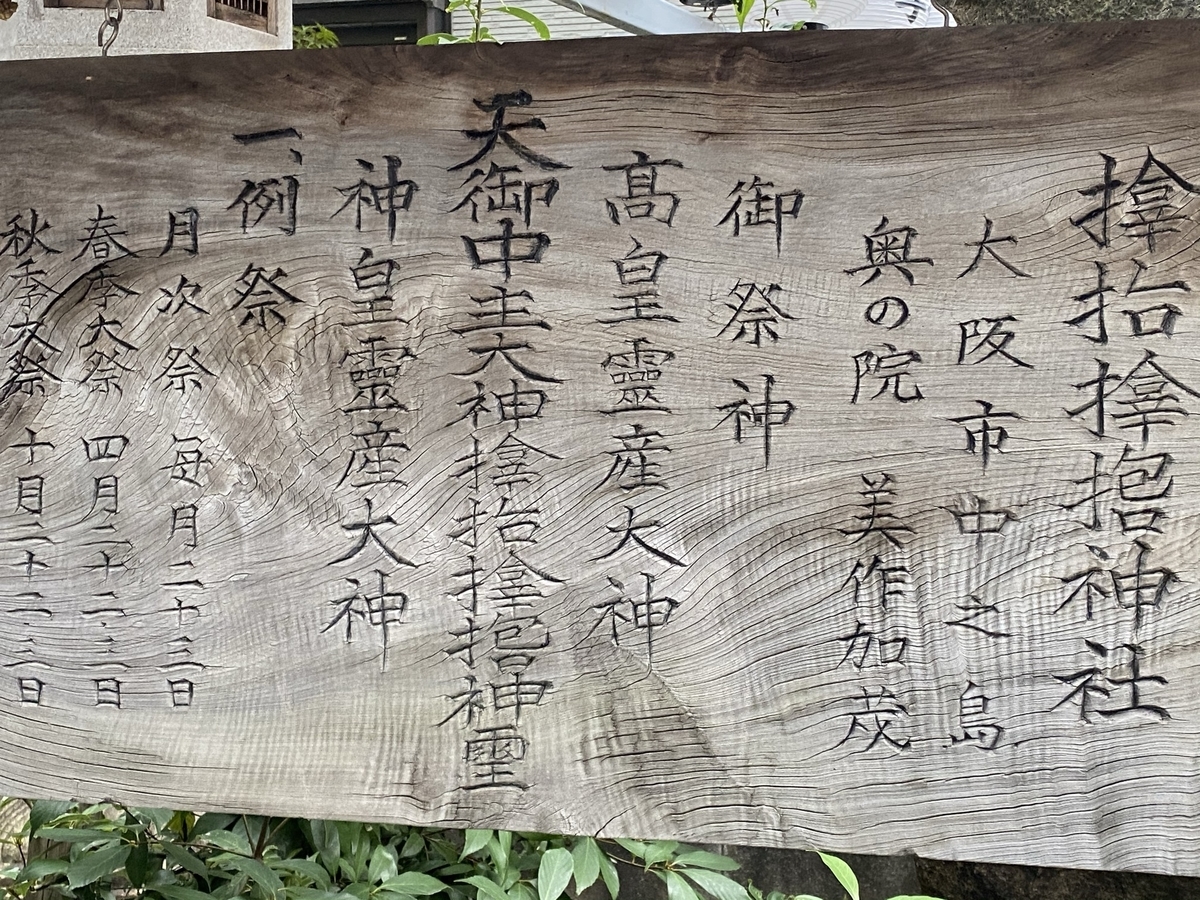 𪮷𫝓𪮷𪮇神社
大阪市中之島
奥の院 美作加茂
御祭神
髙皇靈産大神
天御中主大神𪮷𫝓𪮷𪮇神霊
神皇靈産大神
一、例祭
月次祭 毎月二十三日
春季大祭 四月二十二、三日
秋季大祭 十月二十二、三日